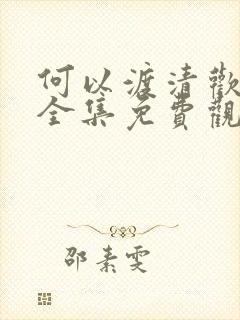 何以渡清歡
全集免費觀
邵素雯